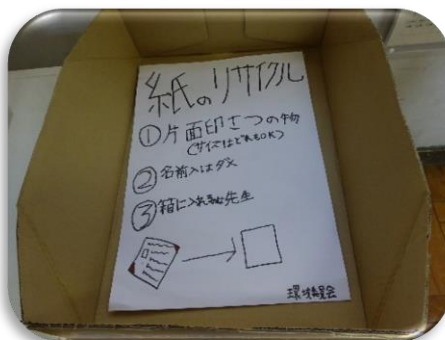 紙のリサイクル
①片面印さつの物
(サイズはどれもOK)
②名前入はダメ
③箱に入れるのは先生
環境委員会